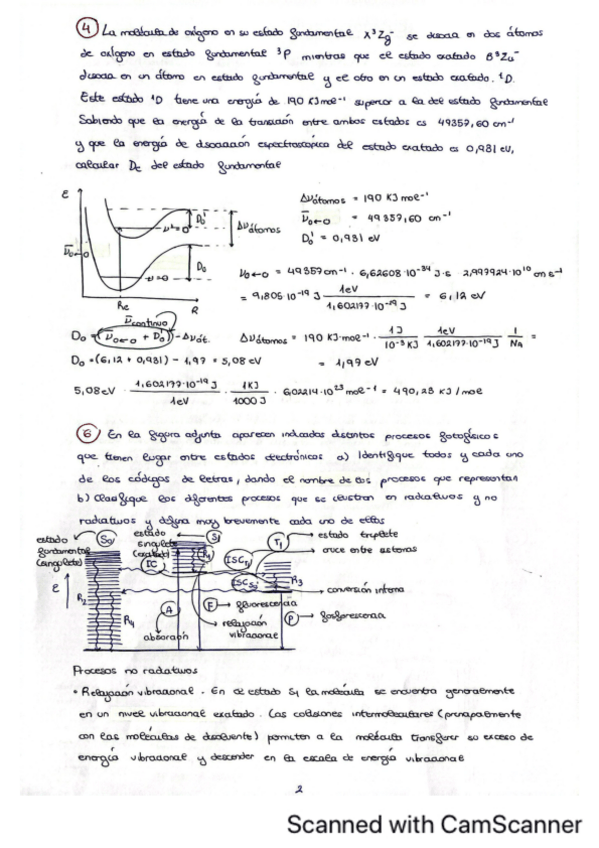 4 La molécula de oxígeno en su estado fundamental X³Σg⁻ se disocia en dos átomos
de oxígeno en estado fundamental ³P mientras que el estado excitado B³Σu⁻
disocia en un átomo en estado fundamental y el otro en un estado excitado. ¹D.
Este estado ¹D tiene una energía de 190 KJ mol⁻¹ superior a la del estado fundamental
Sabiendo que la energía de la transición entre ambos estados es 49357,60 cm⁻¹
y que la energía de disociación espectroscópica del estado excitado es 0,981 eV,
calcular De del estado fundamental
ε
ν'=0
D₀'
Δνátomos
ν̄₀←₀
ν=0
D₀
Re
R
Δνátomos = 190 KJ mol⁻¹
ν̄₀←₀ = 49357,60 cm⁻¹
D₀' = 0,981 eV
ν₀←₀ = 49357 cm⁻¹ · 6,62608·10⁻³⁴ J·s · 2,997924·10¹⁰ cm s⁻¹
= 9,805·10⁻¹⁹ J · 1eV / 1,602177·10⁻¹⁹ J = 6,12 eV
ν̄continuo
D₀ = (ν̄₀←₀ + D₀') - Δνát.
Δνátomos = 190 KJ·mol⁻¹ · 1J / 10⁻³ KJ · 1eV / 1,602177·10⁻¹⁹ J · 1 / NA =
D₀ = (6,12 + 0,981) - 1,97 = 5,08 eV
= 1,97 eV
5,08 eV · 1,602177·10⁻¹⁹ J / 1eV · 1KJ / 1000 J · 6,02214·10²³ mol⁻¹ = 490,28 KJ / mol
6 En la figura adjunta aparecen indicados distintos procesos fotofísicos
que tienen lugar entre estados electrónicos a) Identifique todos y cada uno
de los códigos de letras, dando el nombre de los procesos que representan
b) Clasifique los diferentes procesos que se ilustran en radiativos y no
radiativos y defina muy brevemente cada uno de ellos
estado fundamental (singlete)
S₀
estado singlete (excitado)
S₁
T₁
estado triplete
cruce entre sistemas
IC
R₁
ISC
ISC
R₃
conversión interna
ε
R₂
R₄
A
absorción
F
fluorescencia
relajación vibracional
P
fosforescencia
Procesos no radiativos
• Relajación vibracional. En el estado S₁ la molécula se encuentra generalmente
en un nivel vibracional excitado. Las colisiones intermoleculares (principalmente
con las moléculas de disolvente) permiten a la molécula transferir su exceso de
energía vibracional y descender en la escala de energía vibracional
2
Scanned with CamScanner